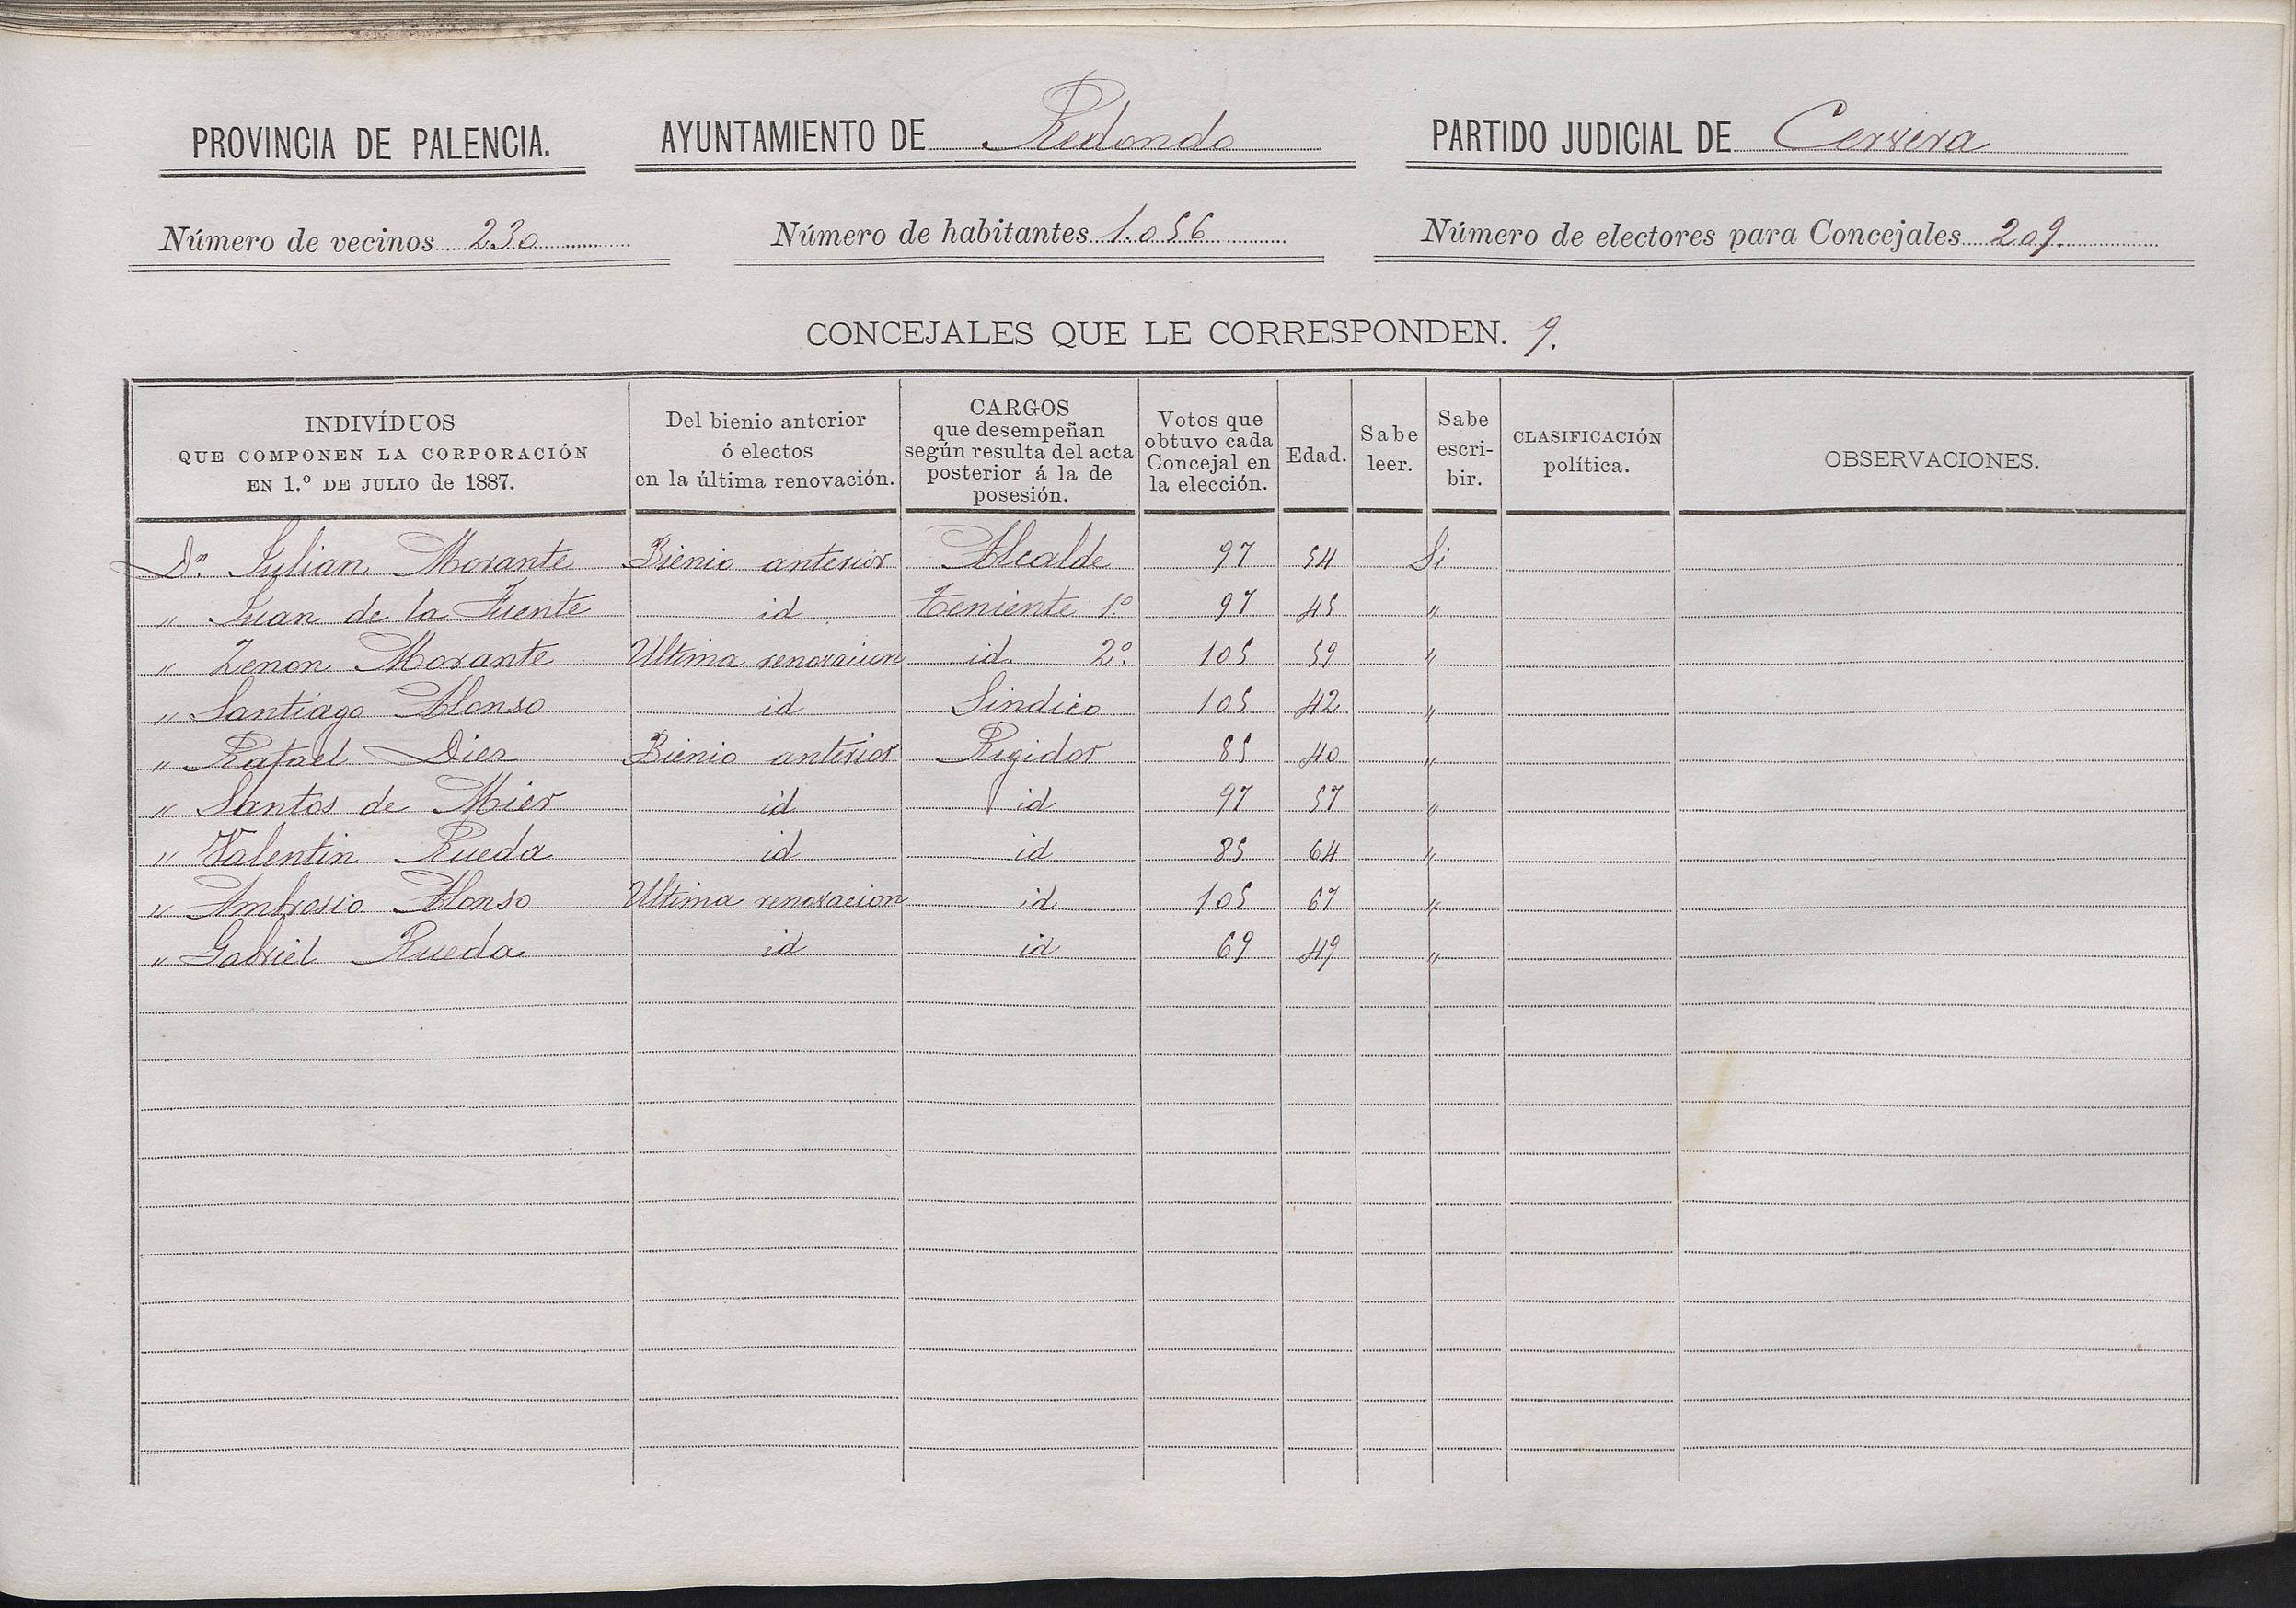 PROVINCIA DE PALENCIA. AYUNTAMIENTO DE Redondo PARTIDO JUDICIAL DE Cervera
Número de vecinos 230 Número de habitantes 1.056 Número de electores para Concejales 209.
CONCEJALES QUE LE CORRESPONDEN. 9.
INDIVÍDUOS
QUE COMPONEN LA CORPORACIÓN
EN 1.º DE JULIO de 1887.
Del bienio anterior
ó electos
en la última renovación.
CARGOS
que desempeñan
según resulta del acta
posterior á la de
posesión.
Votos que
obtuvo cada
Concejal en
la elección.
Edad.
Sabe
leer.
Sabe
escri-
bir.
CLASIFICACIÓN
política.
OBSERVACIONES.
Dn. Julian Morante Bienio anterior Alcalde 97 54 Si
" Juan de la Fuente id Teniente 1º 97 45 "
" Zenon Morante Ultima renovacion id. 2º. 105 59 "
" Santiago Alonso id Sindico 105 42 "
" Rafael Diez Bienio anterior Regidor 85 40 "
" Santos de Mier id id 97 57 "
" Valentin Rueda id id 85 64 "
" Ambrosio Alonso Ultima renovacion id 105 67 "
" Gabriel Rueda id id 69 49 "